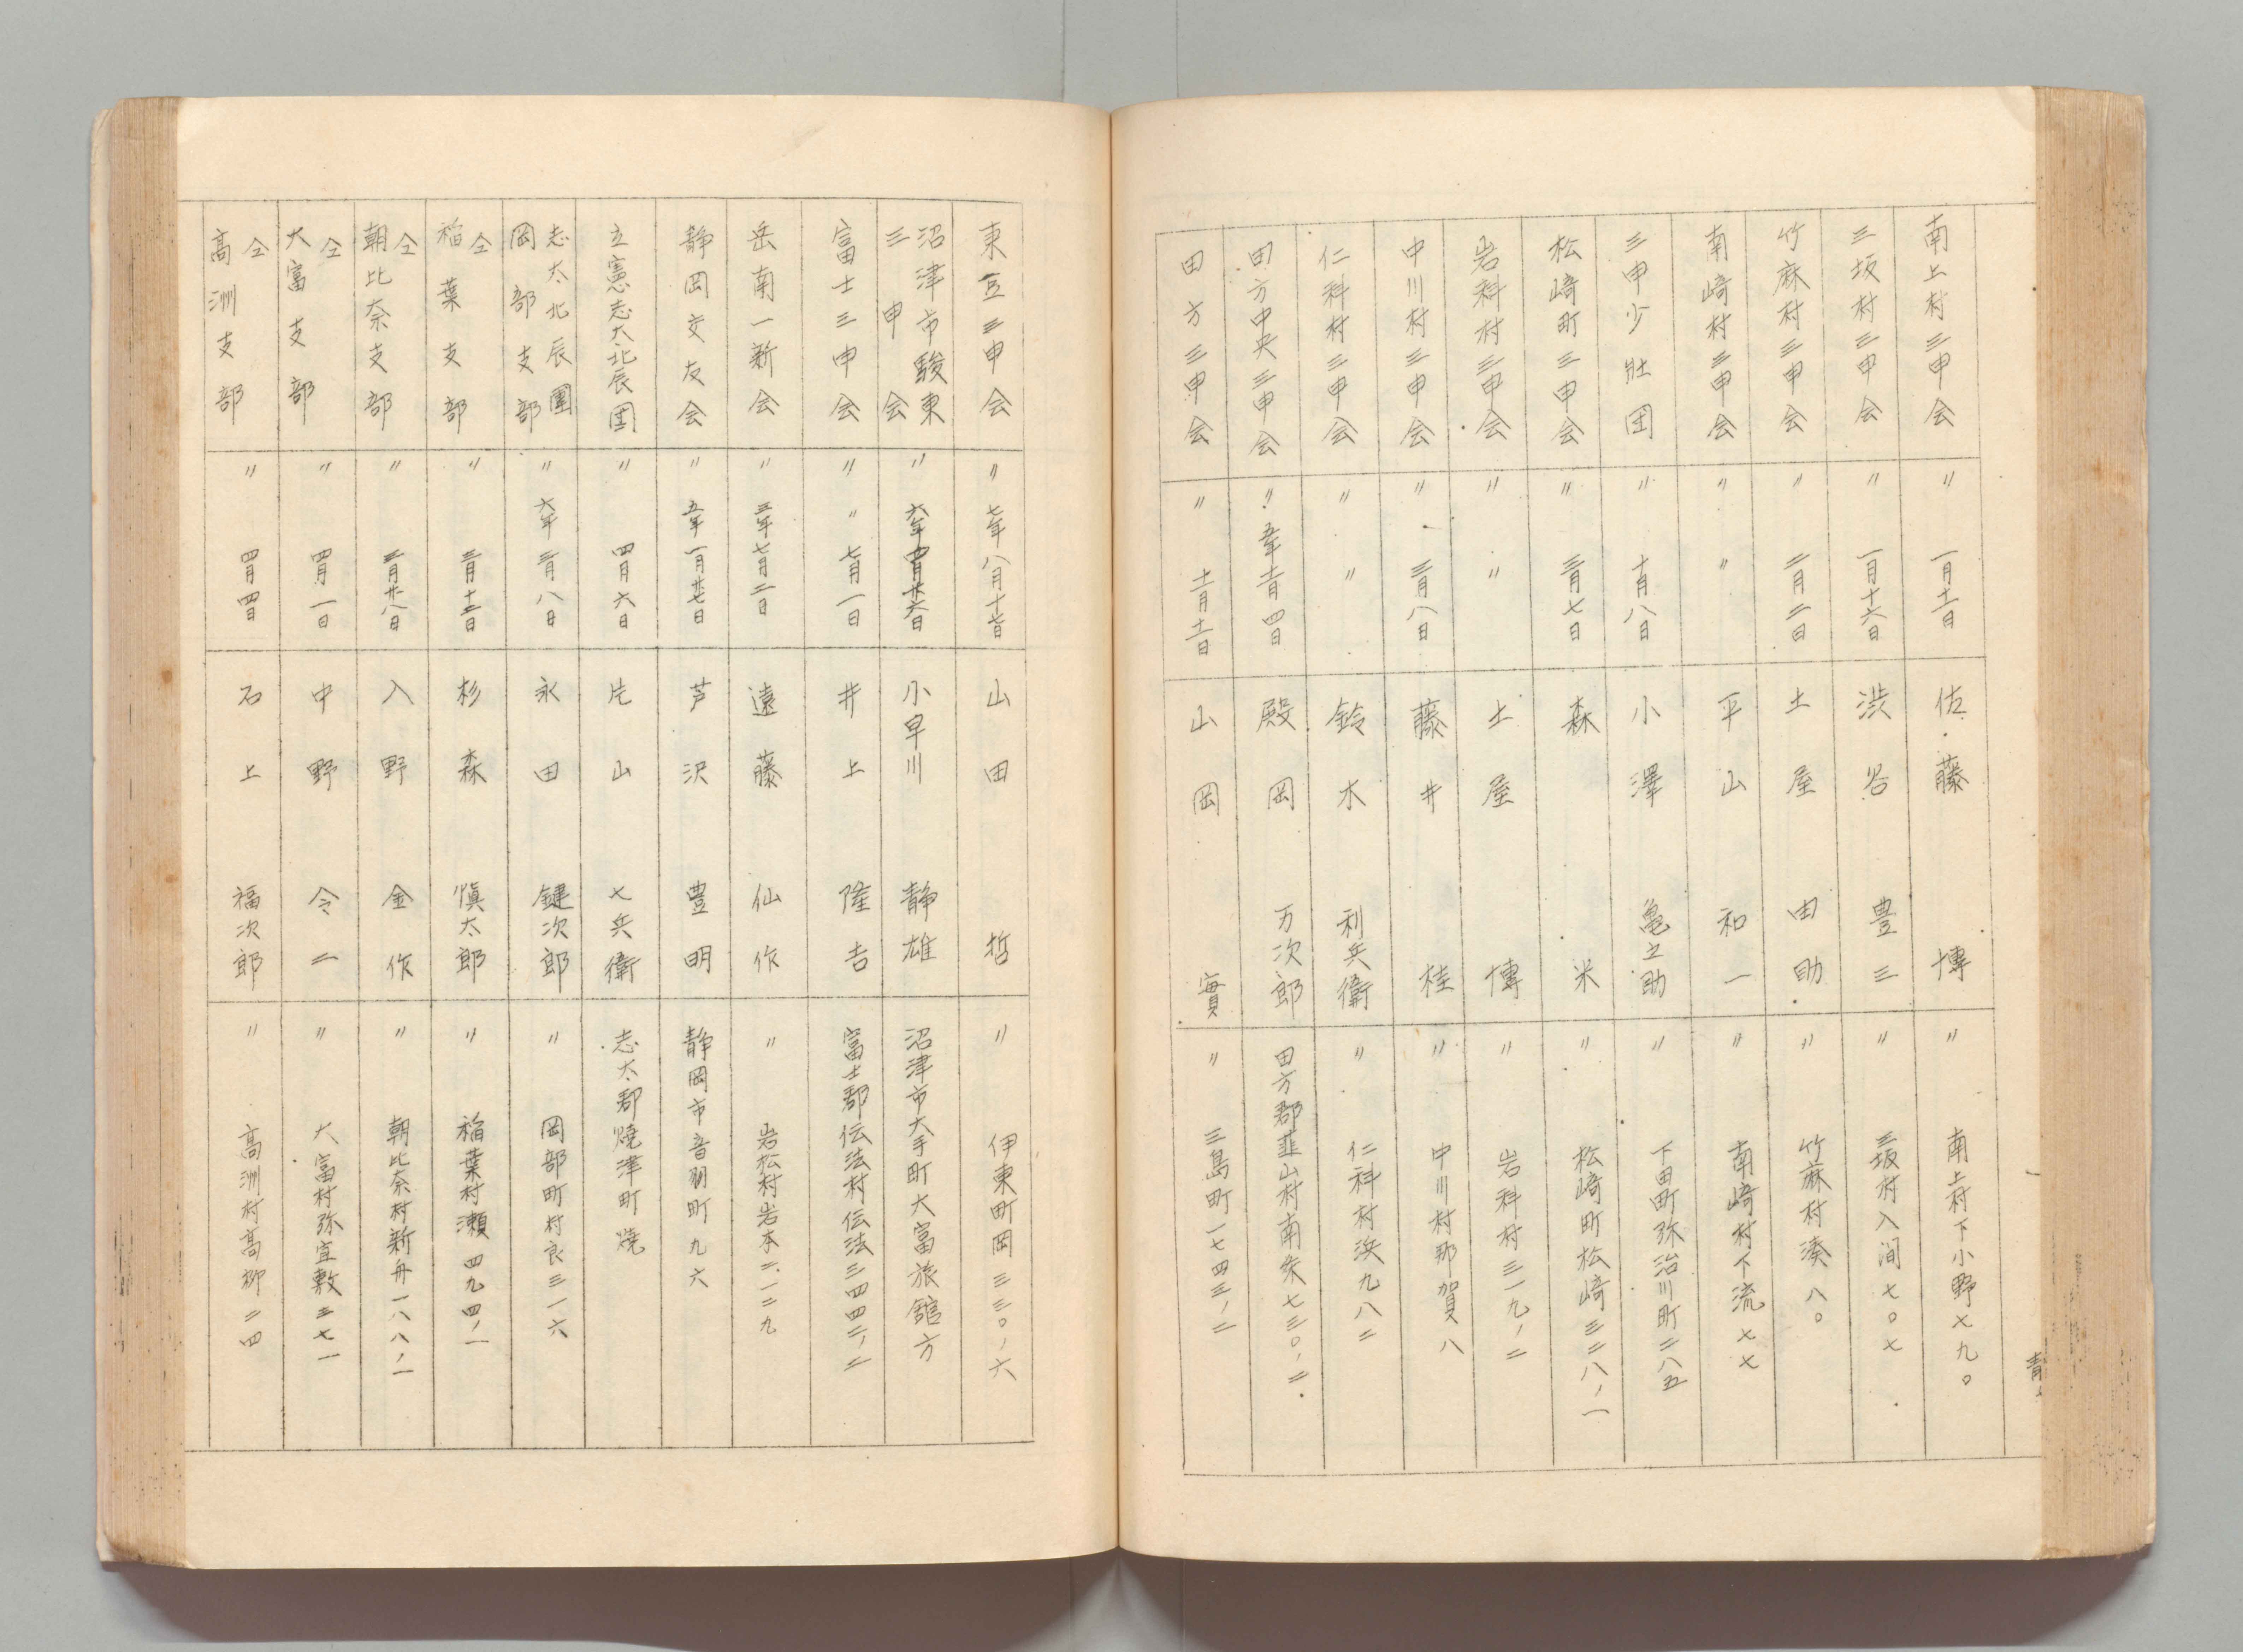 南上村三申会 〃 一月十一日 佐藤 博 〃 南上村下小野七九〇
三坂村三申会 〃 一月十六日 渋谷 豊三 〃 三坂村入间七〇七
竹麻村三申会 〃 二月二日 土屋 由助 〃 竹麻村湊八〇
南崎村三申会 〃 〃 平山 和一 〃 南崎村下流七七
三申少壮団 〃 十月八日 小澤 亀之助 〃 下田町弥治川町二八五
松崎町三申会 〃 三月七日 森 米 〃 松崎町松崎三二八ノ一
岩科村三申会 〃 〃 土屋 博 〃 岩科村三一九ノ二
中川村三申会 〃 三月八日 藤井 桂 〃 中川村那賀八
仁科村三申会 〃 〃 鈴木 利兵衛 〃 仁科村浜九八二
田方中央三申会 〃 四日 殿岡 万次郎 田方郡韮山村南条七三〇ノ二
田方三申会 〃 十一月十一日 山岡 實 〃 三島町一七四三ノ二
東豆三申会 〃 七年八月十七日 山田 哲 〃 伊東町岡三三〇ノ六
沼津市駿東
三申会 〃 六年四月廿六日 小早川 静雄 沼津市大手町大富旅舘方
富士三申会 〃 〃 七月一日 井上 隆吉 富士郡伝法村伝法三四四二ノ二
岳南一新会 〃 三年七月二日 遠藤 仙作 〃 岩松村岩本二一二九
静岡交友会 〃 五年一月廿七日 芦沢 豊明 静岡市音羽町九六
立憲志太北辰团 〃 四月六日 片山 七兵衛 志太郡焼津町焼
志太北辰團
岡部支部 〃 六年三月八日 永田 鍵次郎 〃 岡部町村良三一六
仝
稲葉支部 〃 三月十二日 杉森 愼太郎 〃 稲葉村瀬四九四ノ一
仝
朝比奈支部 〃 三月廿八日 入野 金作 〃 朝比奈村新舟一八八ノ一
仝
大富支部 〃 四月一日 中野 令二 〃 大富村弥宜敷三七一
仝
高洲支部 〃 四月四日 石上 福次郎 〃 高洲村高柳二四